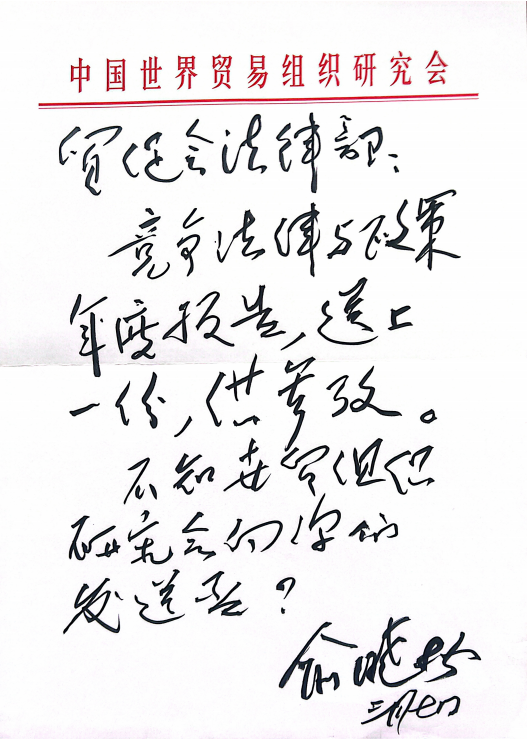 中国世界贸易组织研究会
贸促会法律部：
竞争法律与政策
年度报告，送上
一份，供参考。
不知世贸组织
研究会向你们
发送否？
俞晓松
三月七日